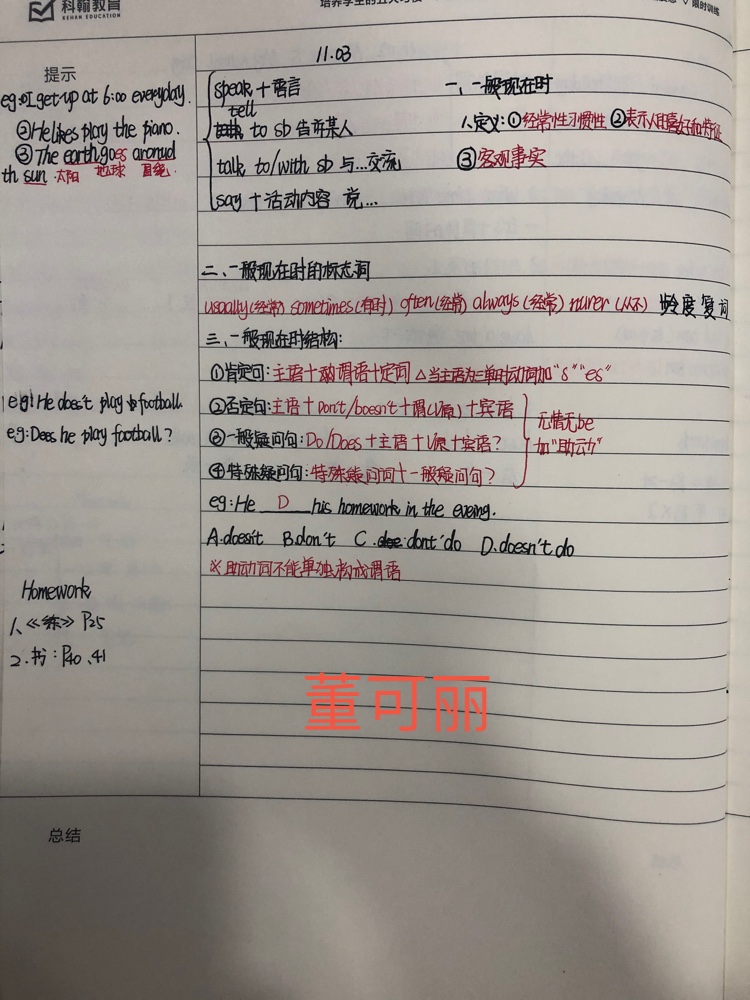 科翰教育
KEHAN EDUCATION
限时训练
11.03
提示
eg:①I get up at 6:00 everyday.
②He likes play the piano.
③The earth goes aronud
th sun. 太阳 地球 围绕.
speak + 语言
tell
to sb 告诉某人
talk to/with sb 与...交流
say + 活动内容 说...
一、一般现在时
1、定义:①经常性习惯性 ②表示人的喜好和特征
③客观事实
二、一般现在时的标志词
usually(经常) sometimes(有时) often(经常) always(经常) nurer (从不) 频度复词
三、一般现在时结构:
①肯定句:主语+谓语+定词 △当主语为三单时动词加"s""es"
②否定句:主语+Don't/boesn't+谓(V原)+宾语
③一般疑问句:Do/Does+主语+V原+宾语?
④特殊疑问句:特殊疑问词+一般疑问句?
无情无be
加"助动"
eg:He does't play football.
eg:Dees he play football?
eg:He D his homework in the eveing.
A.doesit B.don't C.dont'do D.doesn't do
※助动词不能单独构成谓语
Homework
1、《练》P25
2.书:P40、41
董可丽
总结